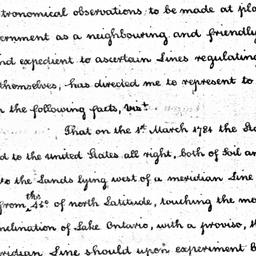 tronomical observations to be made at pla
ernment as a neighbouring and friendly
nd expedient to ascertain Lines regulating
themselves, has directed me to represent to
the following facts, vizt
That on the 1st March 1781 the Sta
d to the United States all right, both of Soil an
to the Lands lying west of a meridian Line
from 45ths º of north Latitude, touching the mo
nclination of Lake Ontario, with a proviso, th
ridian Line should upon experiment b